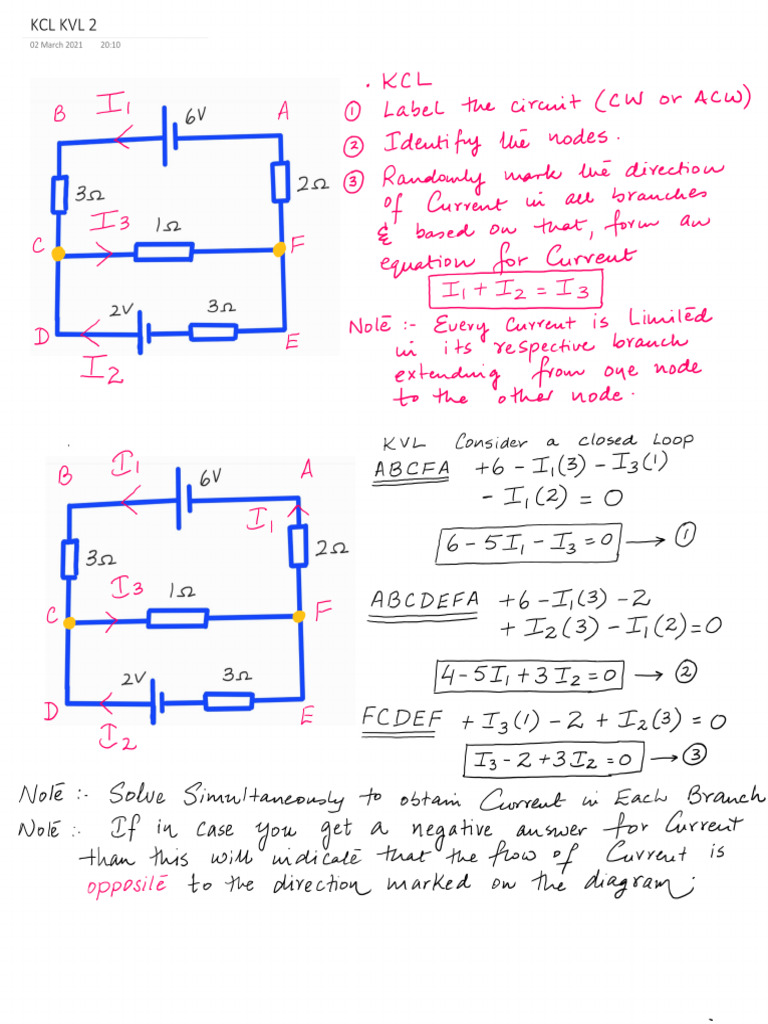 KCL KVL 2
02 March 2021 20:10
B I1 6V A
3Ω 2Ω
I3 1Ω
C F
2V 3Ω
D E
I2
. KCL
① Label the circuit (CW or ACW)
② Identify the nodes.
③ Randomly mark the direction
of Current in all branches
& based on that, form an
equation for Current
I1 + I2 = I3
Note :- Every Current is Limited
in its respective branch
extending from one node
to the other node.
B I1 6V A
I1
3Ω 2Ω
I3 1Ω
C F
2V 3Ω
D E
I2
KVL Consider a closed Loop
ABCFA +6 - I1(3) - I3(1)
- I1(2) = 0
6 - 5I1 - I3 = 0 → ①
ABCDEFA +6 - I1(3) - 2
+ I2(3) - I1(2) = 0
4 - 5I1 + 3I2 = 0 → ②
FCDEF + I3(1) - 2 + I2(3) = 0
I3 - 2 + 3I2 = 0 → ③
Note :- Solve Simultaneously to obtain Current in Each Branch
Note :- If in case you get a negative answer for Current
than this will indicate that the flow of Current is
opposite to the direction marked on the diagram.